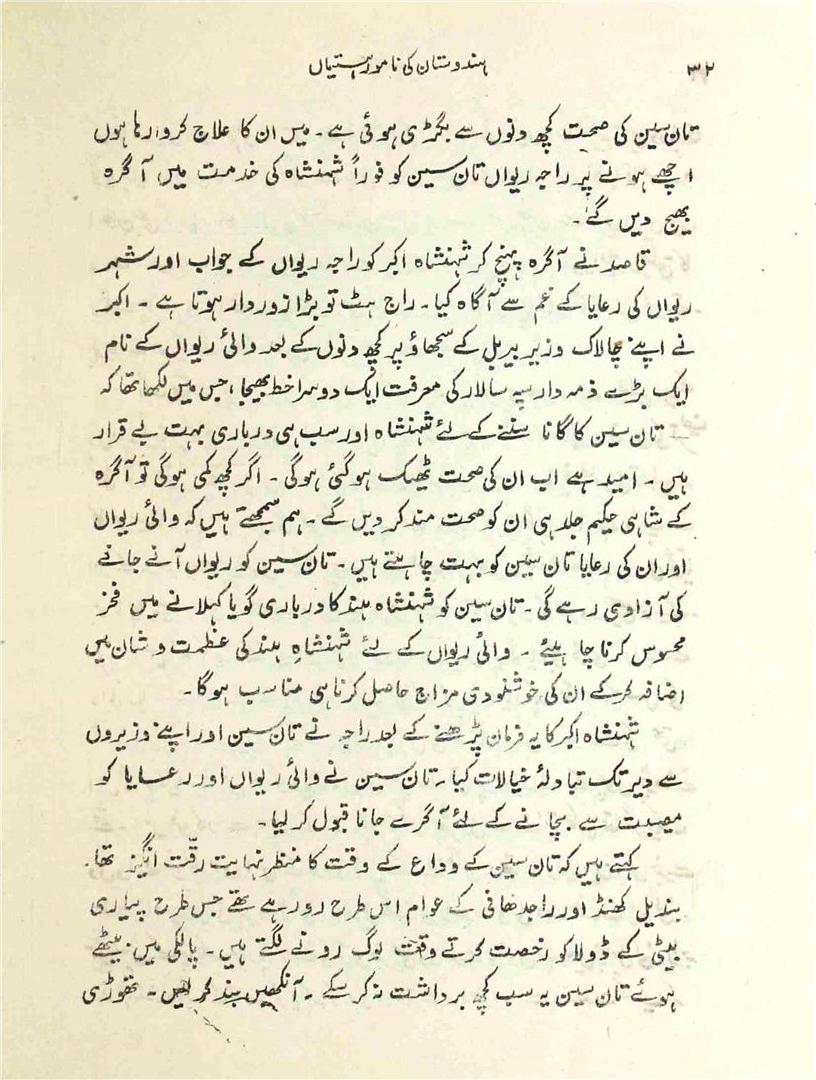 ۳۲
ہندوستان کی نامور ہستیاں
تان سین کی صحت کچھ دنوں سے بگڑی ہوئی ہے۔ میں ان کا علاج کروا رہا ہوں
اچھے ہونے پر راجہ ریواں تان سین کو فوراً شہنشاہ کی خدمت میں آگرہ
بھیج دیں گے۔
قاصد نے آگرہ پہنچ کر شہنشاہ اکبر کو راجہ ریواں کے جواب اور شہر
ریواں کی رعایا کے غم سے آگاہ کیا۔ راج ہٹ تو بڑا زوردار ہوتا ہے۔ اکبر
نے اپنے چالاک وزیر بیربل کے سجھاؤ پر کچھ دنوں کے بعد والئ ریواں کے نام
ایک بڑے ذمہ دار سپہ سالار کی معرفت ایک دوسرا خط بھیجا، جس میں لکھا تھا کہ
— تان سین کا گانا سننے کے لئے شہنشاہ اور سب ہی درباری بہت بے قرار
ہیں۔ امید ہے اب ان کی صحت ٹھیک ہوگئی ہوگی۔ اگر کچھ کمی ہوگی تو آگرہ
کے شاہی حکیم جلد ہی ان کو صحت مند کر دیں گے۔ ہم سمجھتے ہیں کہ والئ ریواں
اور ان کی رعایا تان سین کو بہت چاہتے ہیں۔ تان سین کو ریواں آنے جانے
کی آزادی رہے گی۔ تان سین کو شہنشاہ ہند کا درباری گویا کہلانے میں فخز
محسوس کرنا چاہیئے۔ والئ ریواں کے لئے شہنشاہِ ہند کی عظمت و شان میں
اضافہ کرکے ان کی خوشنودی مزاج حاصل کرنا ہی مناسب ہوگا۔
شہنشاہ اکبر کا یہ فرمان پڑھنے کے بعد راجہ نے تان سین اور اپنے وزیروں
سے دیر تک تبادلۂ خیالات کیا۔ تان سین نے والئ ریواں اور رعایا کو
مصیبت سے بچانے کے لئے آگرے جانا قبول کر لیا۔
کہتے ہیں کہ تان سین کے وداع کے وقت کا منظر نہایت رقّت انگیز تھا۔
بندیل کھنڈ اور راجدھانی کے عوام اس طرح رو رہے تھے جس طرح پیاری
بیٹی کے ڈولا کو رخصت کرتے وقت لوگ رونے لگتے ہیں۔ پالکی میں بیٹھے
ہوئے تان سین یہ سب کچھ برداشت نہ کر سکے۔ آنکھیں بند کر لیں۔ تھوڑی